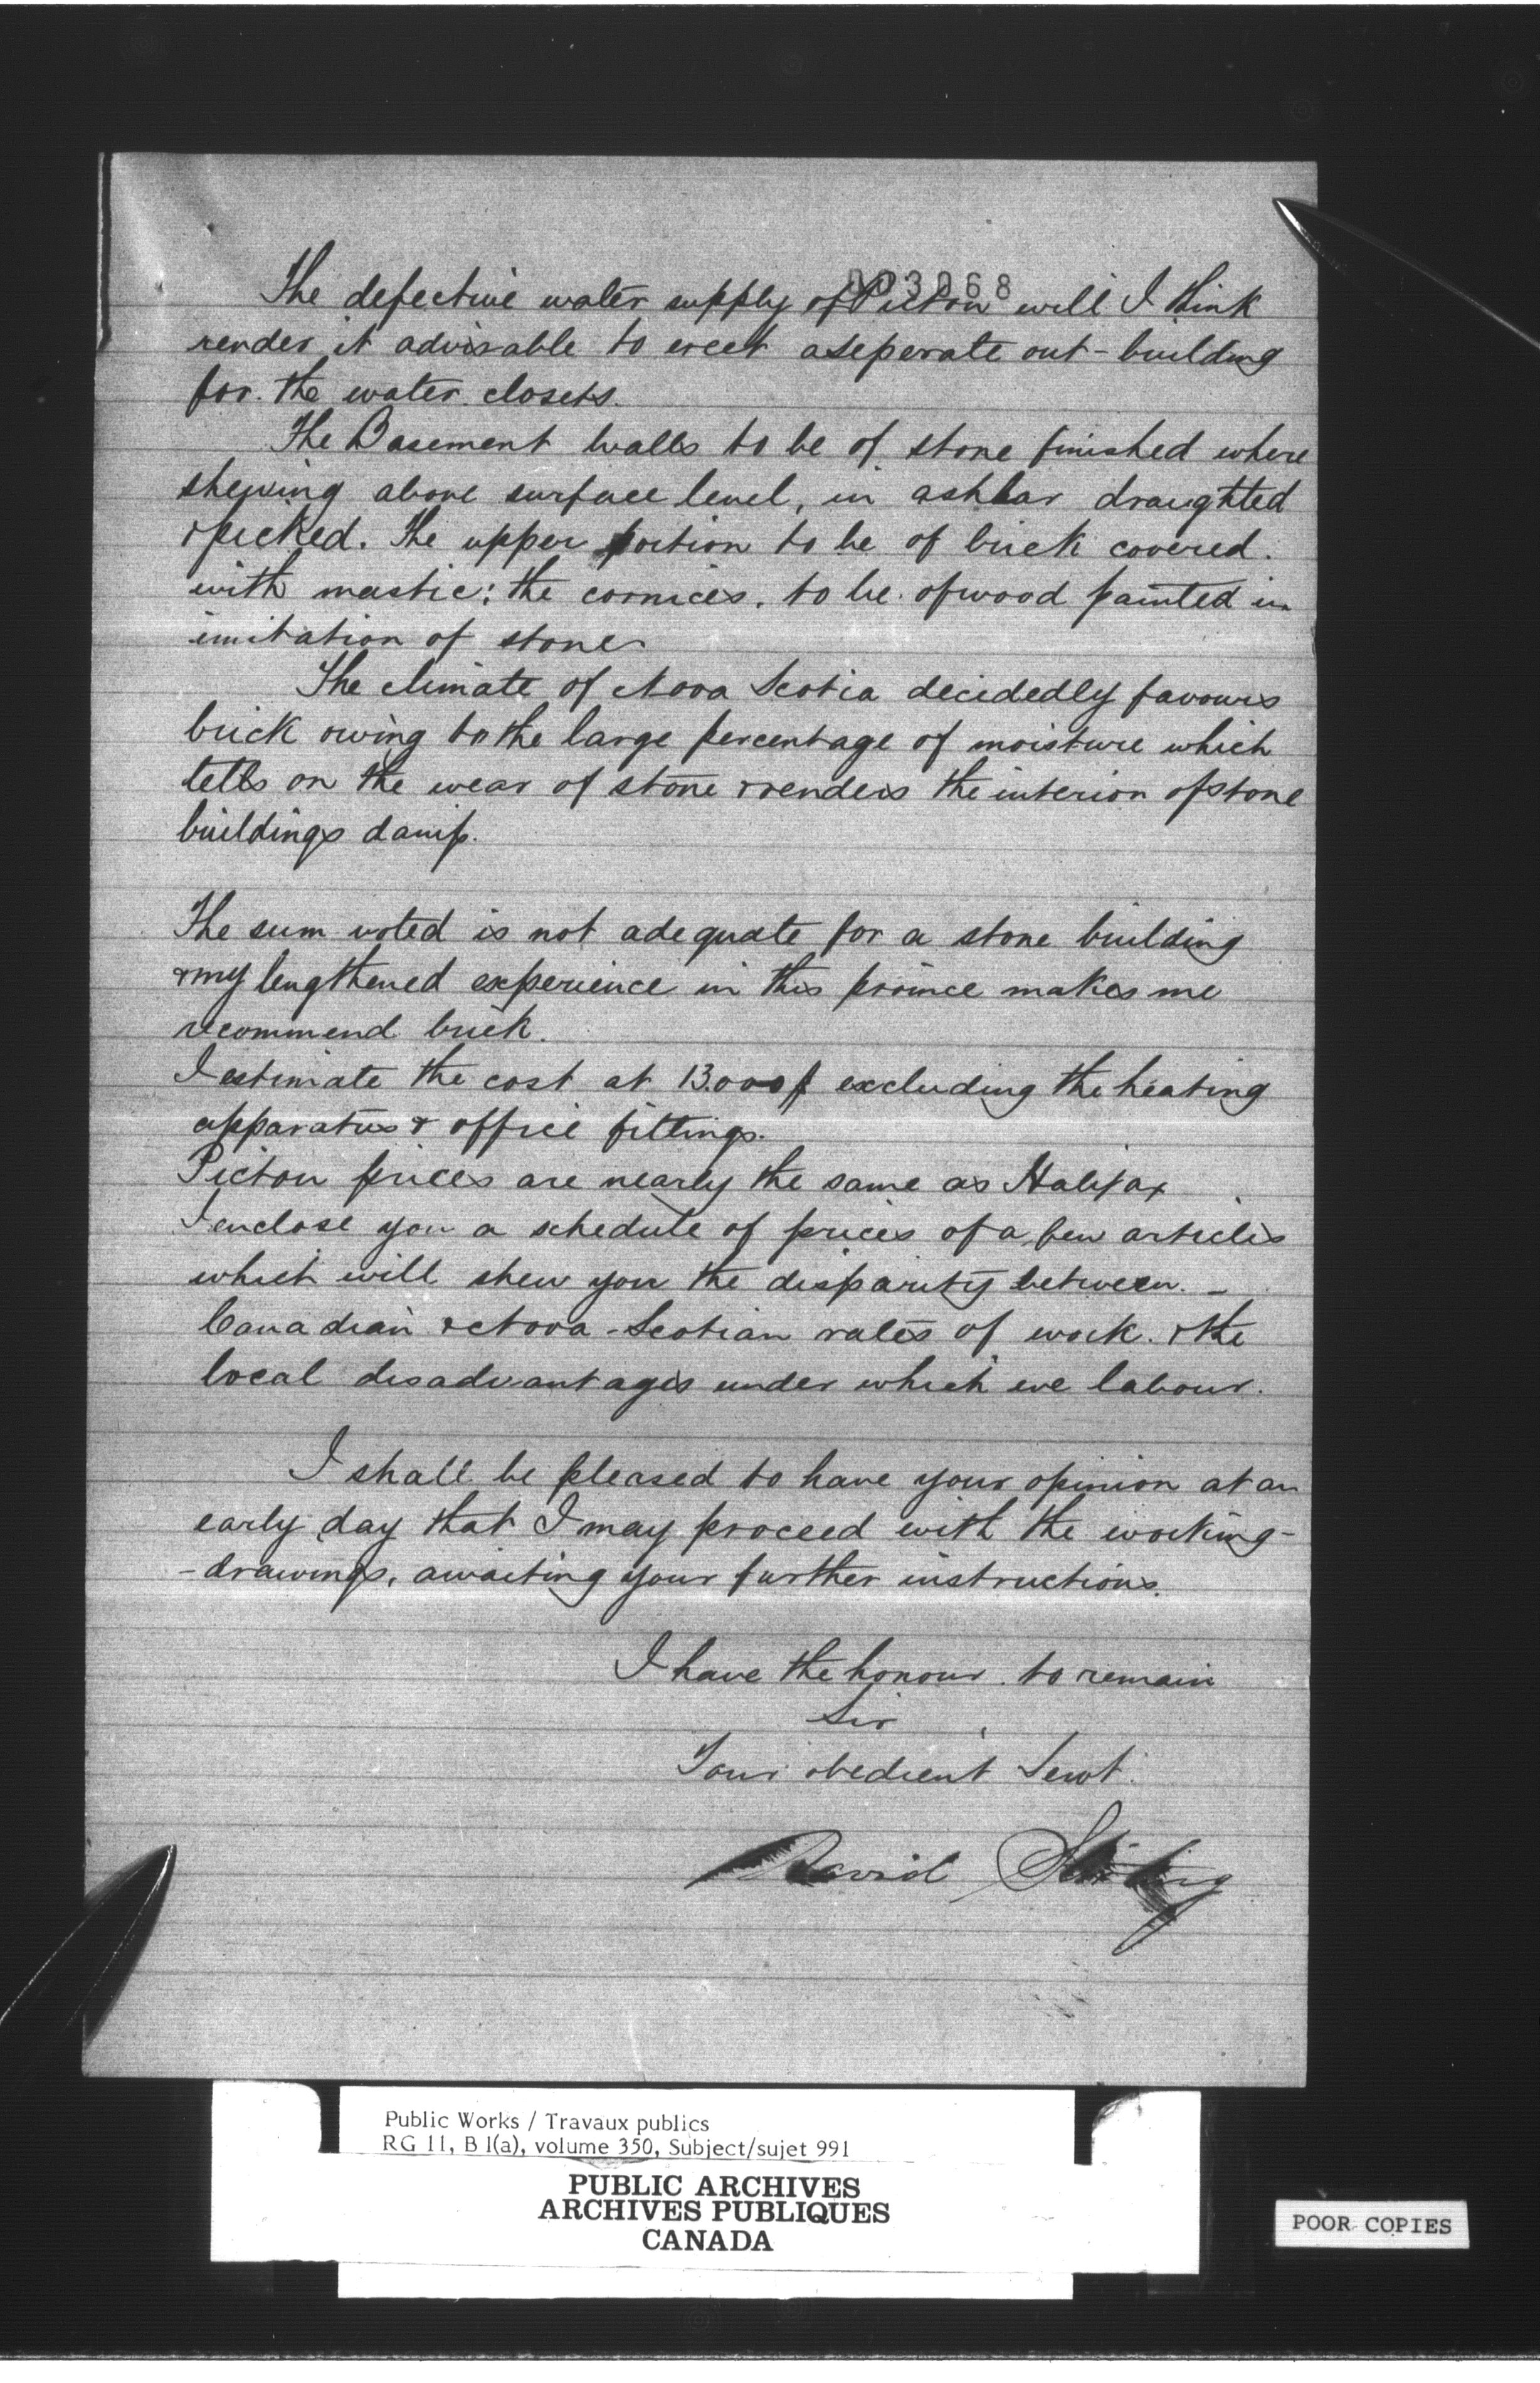 003068
The defective water supply of Pictou will I think
render it advisable to erect a seperate out-building
for the water closets.
The Basement walls to be of stone finished where
shewing above surface level, in ashlar draughted
& picked. The upper portion to be of brick covered
with mastic; the cornices, to be of wood painted in
imitation of stone.
The climate of Nova Scotia decidedly favours
brick owing to the large percentage of moisture which
tells on the wear of stone & renders the interior of stone
buildings damp.
The sum voted is not adequate for a stone building
& my lengthened experience in this province makes me
recommend brick.
I estimate the cost at 13.000$ excluding the heating
apparatus & office fittings.
Pictou prices are nearly the same as Halifax
I enclose you a schedule of prices of a few articles
which will shew you the disparity between -
Canadian & Nova-Scotian rates of work. & the
local disadvantages under which we labour.
I shall be pleased to have your opinion at an
early day that I may proceed with the working-
-drawings, awaiting your further instructions.
I have the honour to remain
Sir
Your obedient Servt.
David Stirling
Public Works / Travaux publics
RG 11, B 1(a), volume 350, Subject/sujet 991
PUBLIC ARCHIVES
ARCHIVES PUBLIQUES
CANADA
POOR COPIES